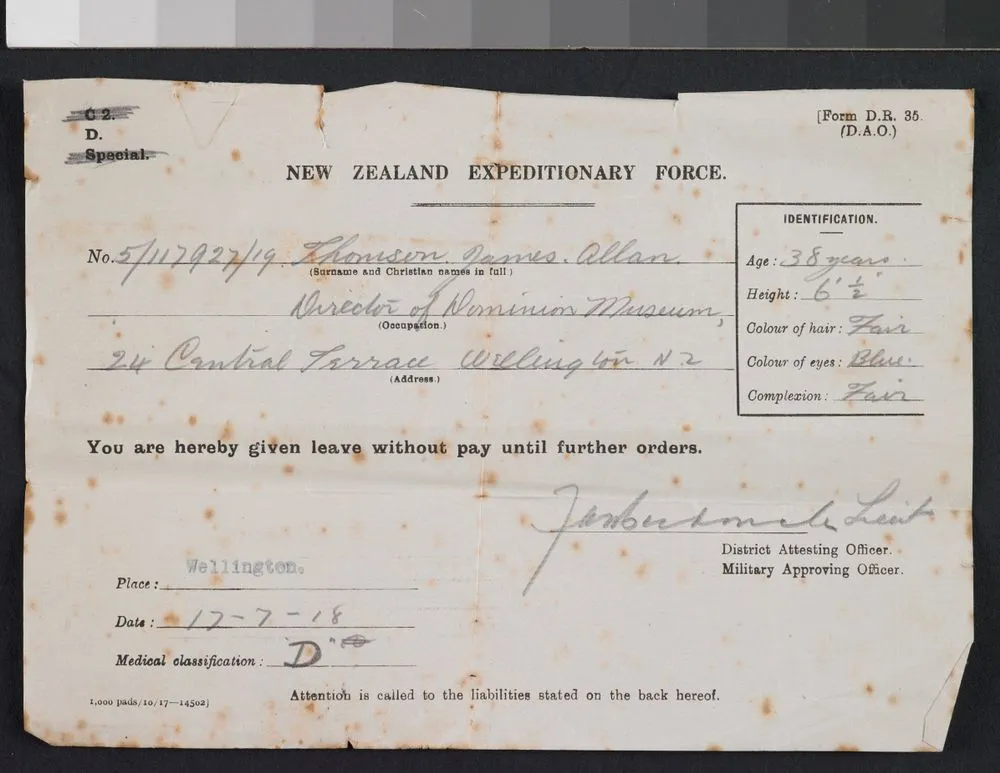 C 2.
D.
Special.
[Form D.R. 35.
(D.A.O.)
NEW ZEALAND EXPEDITIONARY FORCE.
No. 5/117927/19 Thomson. James. Allan.
(Surname and Christian names in full)
Director of Dominion Museum,
(Occupation.)
24 Central Terrace Wellington N.Z
(Address.)
IDENTIFICATION.
Age: 38 years.
Height: 6' ½"
Colour of hair: Fair
Colour of eyes: Blue.
Complexion: Fair
You are hereby given leave without pay until further orders.
Lieut
District Attesting Officer.
Military Approving Officer.
Place: Wellington.
Date: 17-7-18
Medical classification: D
Attention is called to the liabilities stated on the back hereof.
1,000 pads/10/17—14502]